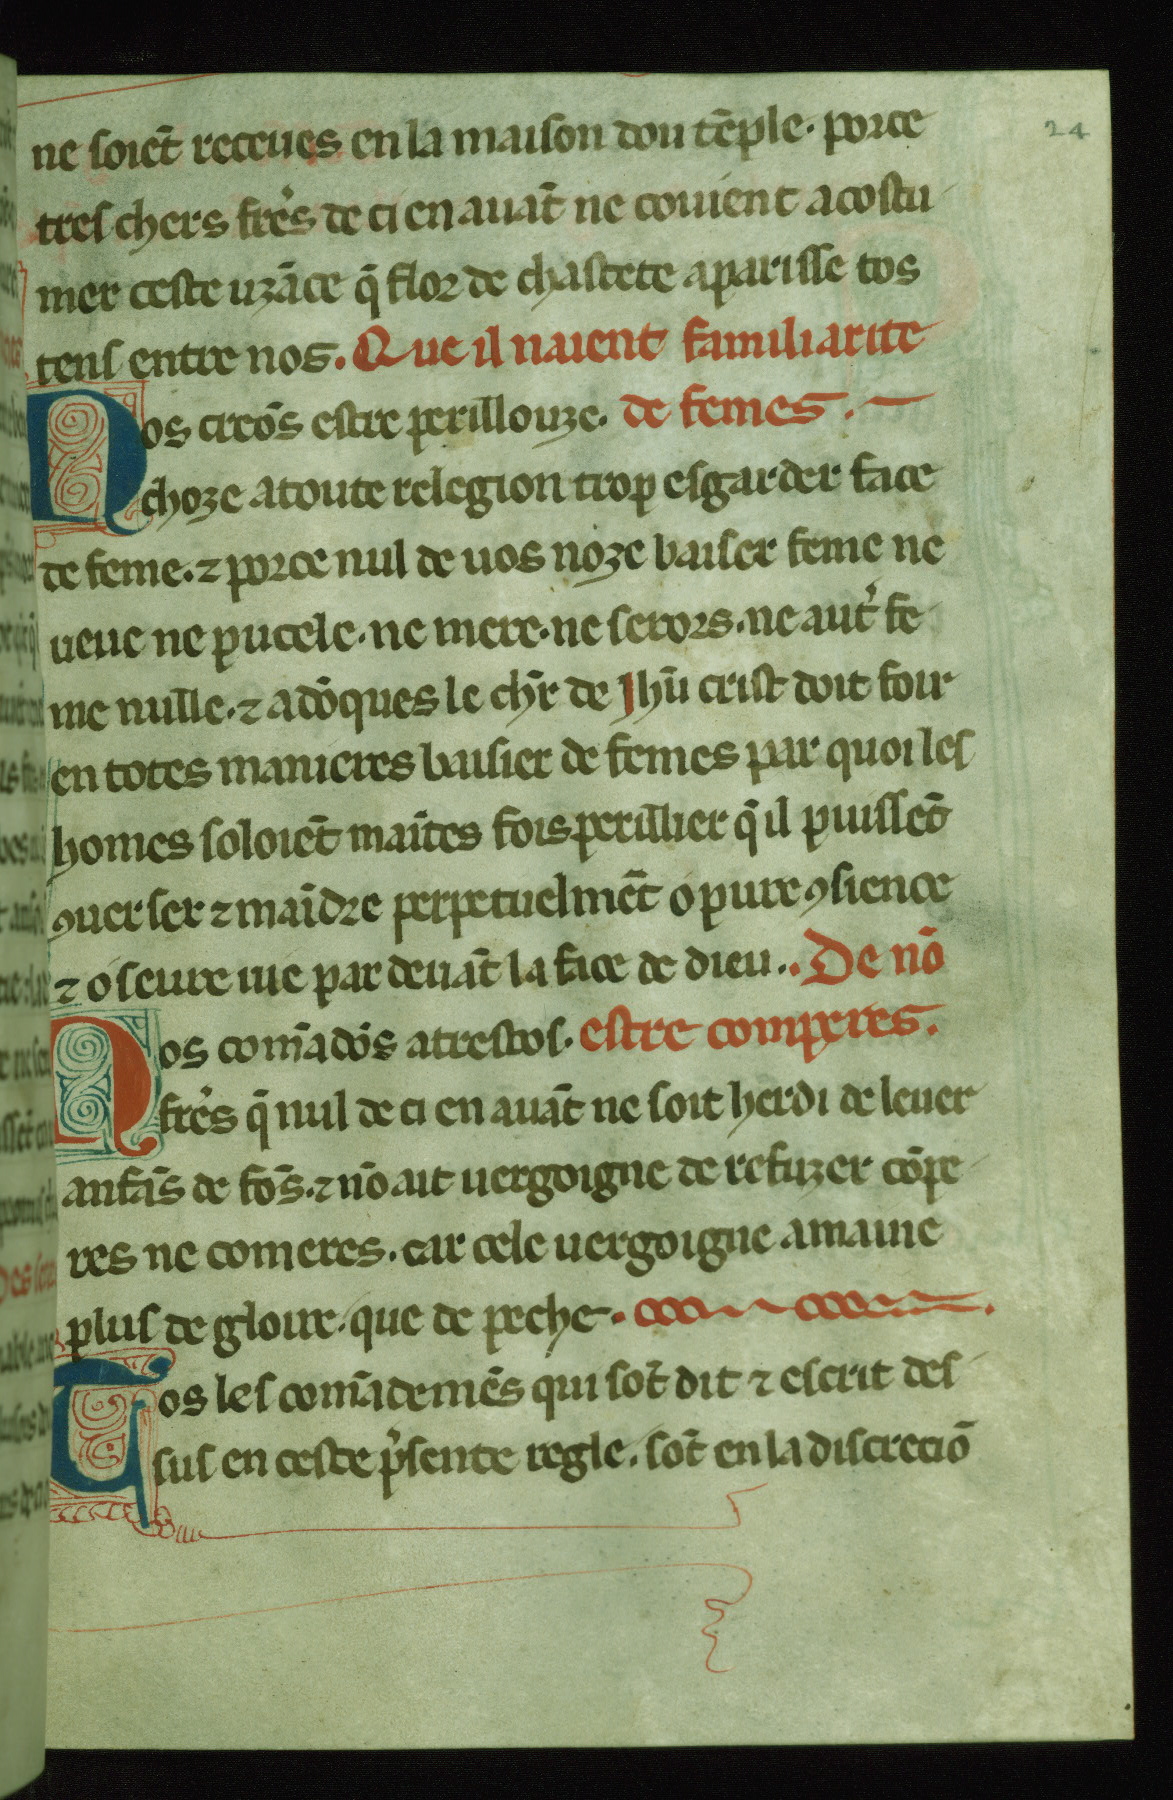 24
ne soiēt receues en la maison dou tēple· porce
tres chers frēs de ci en auāt ne couient a costu
mer ceste uzāce q̄ flor de chastete aparisse tos
tens entre nos. Que il naient familiarite
Nos creōs estre perillouze. de femes.
choze a toute relegion trop esgarder face
de feme.⁊ porce nul de uos noze baiser feme ne
ueue ne pucele· ne mere· ne serors· ne aut̄ fe
me nulle.⁊ adōques le ch̄r de Jhū crist doit foir
en totes manieres baisier de femes par quoi les
homes soloiēt maītes fois perillier q̄ il puissēt
ꝯuerser ⁊ maīdre perpetuelmēt o pure ꝯsience
⁊ o seure uie par deuāt la face de dieu.. De nō
Nos com̄adōs a trestos. estre comperes.
frēs q̄ nul de ci en auāt ne soit herdi de leuer
anfās de fōs.⁊ nō ait uergoigne de refuzer cōpe
res ne comeres. car cele uergoigne amaine
plus de gloire. que de peche.
Tos les com̄ademēs qui sōt dit ⁊ escrit des
sus en ceste p̄sente regle. sōt en la discreciō